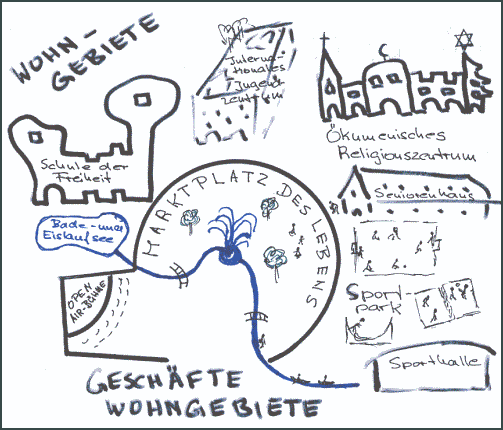 WOHN-
GEBIETE
Internationales
Jugend
zentrum
Ökumenisches
Religionszentrum
Schule der
Freiheit
Seniorenhaus
MARKTPLATZ DES LEBENS
Bade- und
Eislaufsee
OPEN
AIR-BÜHNE
Sport-
park
Sporthalle
GESCHÄFTE
WOHNGEBIETE